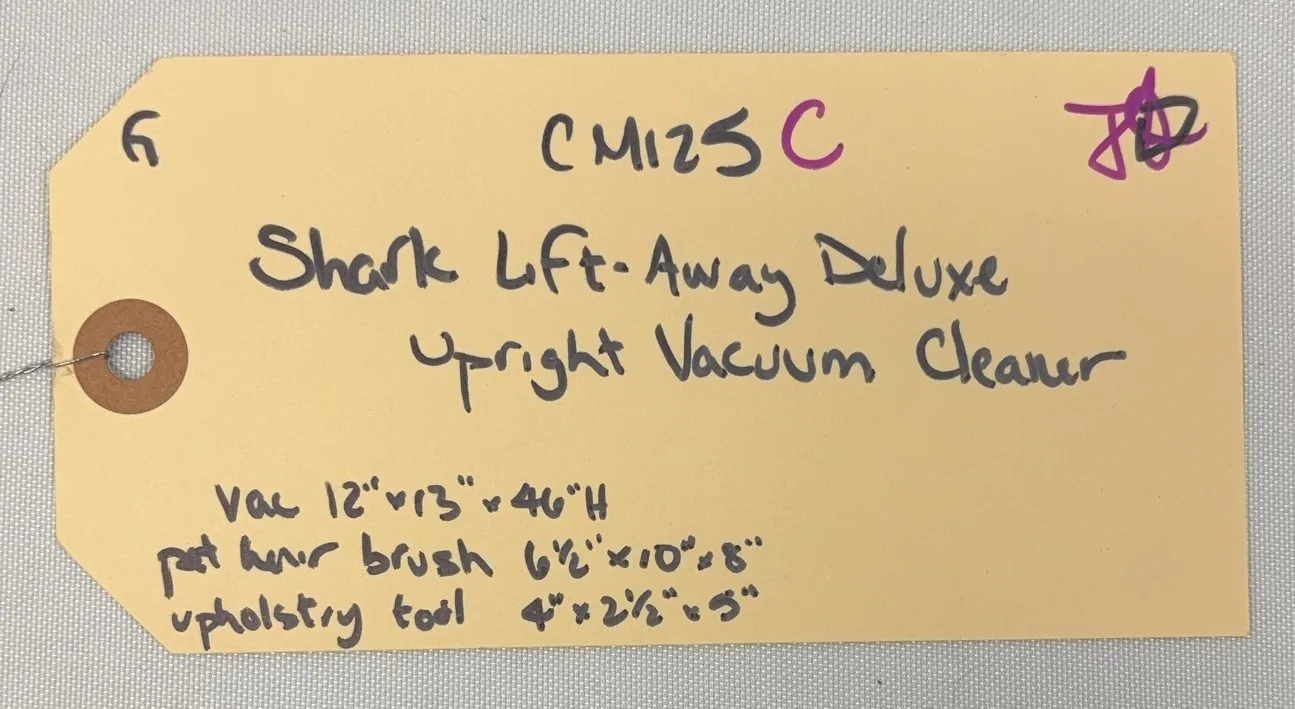 G CM125 C
Shark Lift-Away Deluxe
Upright Vacuum Cleaner
Vac 12"x13"x46"H
pet hair brush 6½"x10"x8"
upholstry tool 4"x2½"x5"